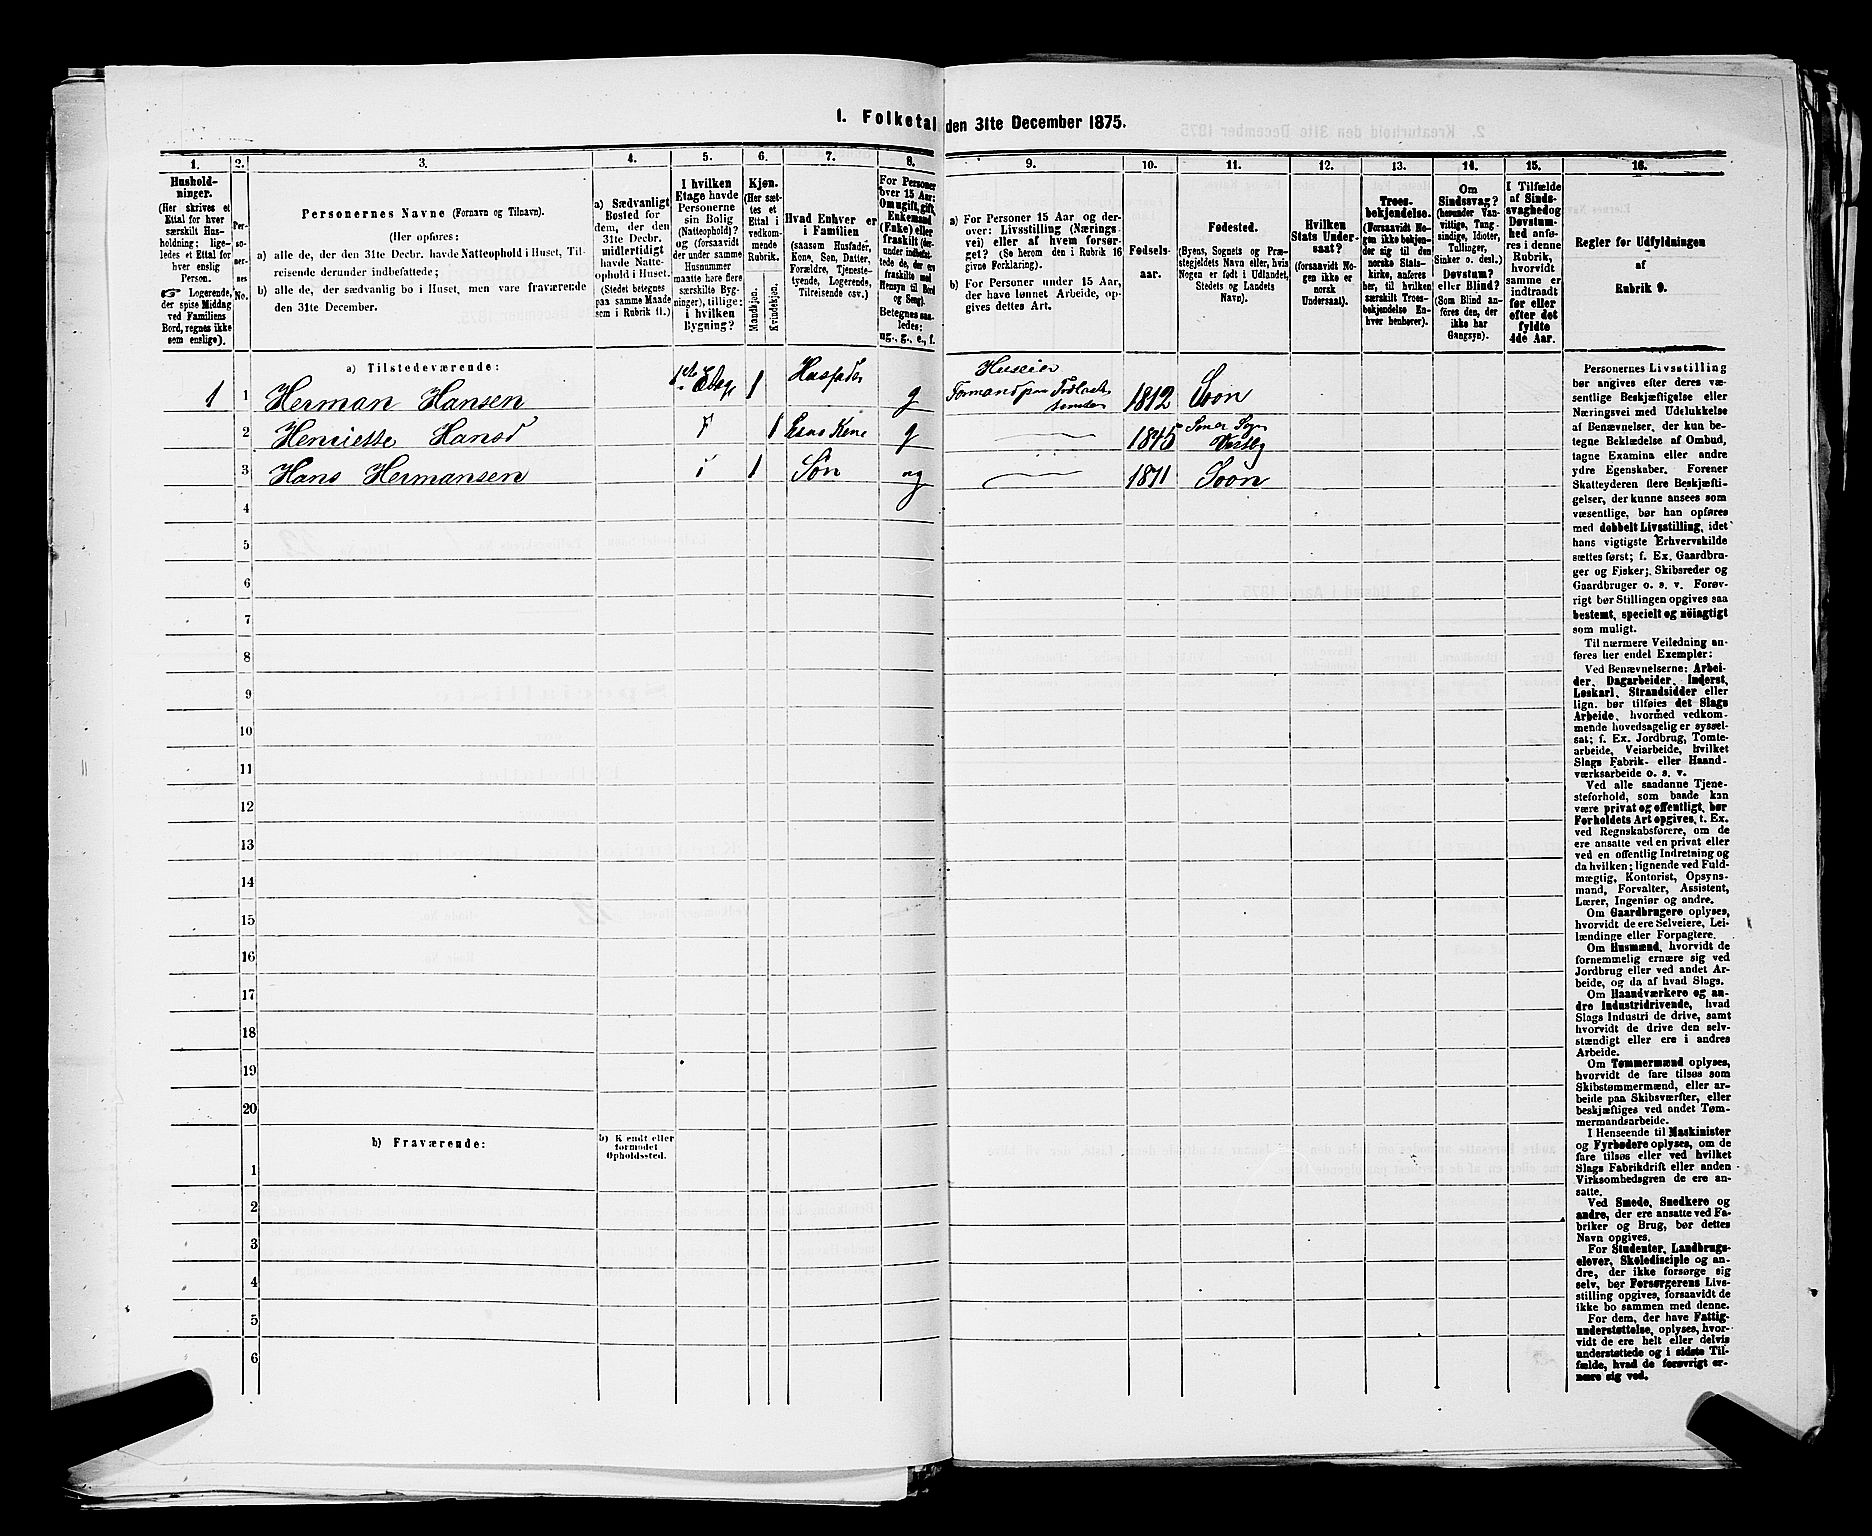 1. Folketal den 31te December 1875.
1. 2. 3. 4. 5. 6. 7. 8. 9. 10. 11. 12. 13. 14. 15. 16.
Hushold-
ninger.
(Her skrives et
Ettal for hver
særskilt Hus-
holdning; lige-
ledes et Ettal
for hver enslig
Person.
☞ Logerende,
der spise Middag
ved Familiens
Bord, regnes ikke
som enslige).
Per-
so-
ner-
nes
No.
Personernes Navne (Fornavn og Tilnavn).
(Her opføres:
a) alle de, der den 31te Decbr. havde Natteophold i Huset, Til-
reisende derunder indbefattede;
b) alle de, der sædvanlig bo i Huset, men vare fraværende
den 31te December.
a) Sædvanligt
Bosted for
dem, der den
31te Decbr.
midlertidigt
havde Natte-
ophold i Huset.
(Stedet betegnes
paa samme Maade
som i Rubrik 11.)
I hvilken
Etage havde
Personerne
sin Bolig
(Natteophold)?
og (forsaavidt
der under samme
Husnummer
maatte høre flere
særskilte Byg-
ninger), tillige:
i hvilken
Bygning?
Kjøn.
(Her sæt-
tes et
Ettal i
vedkom-
mende
Rubrik.
Mandkjøn.
Kvindekjøn.
Hvad Enhver er
i Familien
(saasom Husfader,
Kone, Søn, Datter,
Forældre, Tjeneste-
tyende, Logerende,
Tilreisende osv.)
For Personer
over 15 Aar:
Om ugift, gift,
Enkemand
(Enke) eller
fraskilt
Betegnes saa-
ledes:
ug., g., e., f.
a) For Personer 15 Aar og der-
over: Livsstilling (Nærings-
vei) eller af hvem forsør-
get? (Se herom den i Rubrik 16
givne Forklaring).
b) For Personer under 15 Aar,
der have lønnet Arbeide, op-
gives dettes Art.
Fødsels-
aar.
Fødested.
(Byens, Sognets og Præ-
stegjeldets Navn eller, hvis
Nogen er født i Udlandet,
Stedets og Landets
Navn).
Hvilken
Stats Under-
saat?
(forsaavidt No-
gen ikke er
norsk
Undersaat).
Troes-
bekjendelse.
(Forsaavidt No-
gen ikke bekjen-
der sig til den
norske Stats-
kirke, anføres
her, til hvilken
særskilt Troes-
bekjendelse En-
hver henhører).
Om
Sindssvag?
(herunder Van-
vittige, Tung-
sindige, Idioter,
Tullinger,
Sinker o. desl.)
Døvstum?
eller Blind?
(Som Blind an-
føres den, der
ikke har
Gangsyn).
I Tilfælde
af Sinds-
svaghed og
Døvstum-
hed anfø-
res i denne
Rubrik,
hvorvidt
samme er
indtraadt
før eller
efter det
fyldte
4de Aar.
Regler for Udfyldningen
af
Rubrik 9.
a) Tilstedeværende:
1 1 Herman Hansen 1ste Etage 1 Husfader g Huseier Formand paa 1812 Soon
2 Henriette Hansd 1 Kone g 1845 Sogn Vestby
3 Hans Hermansen 1 Søn ug 1871 Soon
4
5
6
7
8
9
10
11
12
13
14
15
16
17
18
19
20
b) Fraværende:
b) Kjendt eller
formodet
Opholdssted.
1
2
3
4
5
6
Personernes Livsstilling
bør angives efter deres væ-
sentlige Beskjæftigelse eller
Næringsvei med Udelukkelse
af Benævnelser, der kun be-
tegne Beklædelse af Ombud,
tagne Examina eller andre
ydre Egenskaber. Forener
Skatteyderen flere Beskjæfti-
gelser, der kunne ansees som
væsentlige, bør han opføres
med dobbelt Livsstilling, idet
hans vigtigste Erhvervskilde
sættes først; f. Ex. Gaardbru-
ger og Fisker; Skibsreder og
Gaardbruger o. s. v. Forøv-
rigt bør Stillingen opgives saa
bestemt, specielt og nöiagtigt
som muligt.
Til nærmere Veiledning an-
føres her endel Exempler:
Ved Benævnelserne: Arbei-
der, Dagarbeider, Inderst,
Løskarl, Strandsidder eller
lign. bør tilføies det Slags
Arbeide, hvormed vedkom-
mende hovedsagelig er syssel-
sat; f. Ex. Jordbrug, Tomte-
arbeide, Veiarbeide, hvilket
Slags Fabrik- eller Haand-
værksarbeide o. s. v.
Ved alle saadanne Tjene-
steforhold, som baade kan
være privat og offentligt, bør
Forholdets Art opgives, t. Ex.
ved Regnskabsførere, om de
ere ansatte ved en privat eller
ved en offentlig Indretning og
da hvilken; lignende ved Fuld-
mægtig, Kontorist, Opsyns-
mand, Forvalter, Assistent,
Lærer, Ingeniør og andre.
Om Gaardbrugere oplyses,
hvorvidt de ere Selveiere, Lei-
lændinge eller Forpagtere.
Om Husmænd, hvorvidt de
fornemmelig ernære sig ved
Jordbrug eller ved andet Ar-
beide, og da af hvad Slags.
Om Haandværkere og an-
dre Industridrivende, hvad
Slags Industri de drive, samt
hvorvidt de drive den selv-
stændigt eller ere i andres
Arbeide.
Om Tømmermænd oplyses,
hvorvidt de fare tilsøs som
Skibstømmermænd, eller ar-
beide paa Skibsværfter, eller
beskjæftiges ved andet Tøm-
mermandsarbeide.
I Henseende til Maskinister
og Fyrbødere oplyses, om de
fare tilsøs eller ved hvilket
Slags Fabrikdrift eller anden
Virksomhedsgren de ere an-
satte.
Ved Smede, Snedkere og
andre, der ere ansatte ved Fa-
briker og Brug, bør dettes
Navn opgives.
For Studenter, Landbrugs-
elever, Skoledisciple og an-
dre, der ikke forsørge sig
selv, bør Forsørgerens Livs-
stilling opgives, forsaavidt de
ikke bo sammen med denne.
For dem, der have Fattig-
understøttelse, oplyses, hvor-
vidt de ere helt eller delvis
understøttede og i sidste Til-
fælde, hvad de forøvrigt er-
nære sig ved.